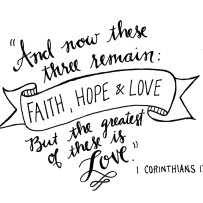 "And now these
three remain:
FAITH, HOPE & LOVE
But the greatest
of these is
Love."
1 CORINTHIANS 1